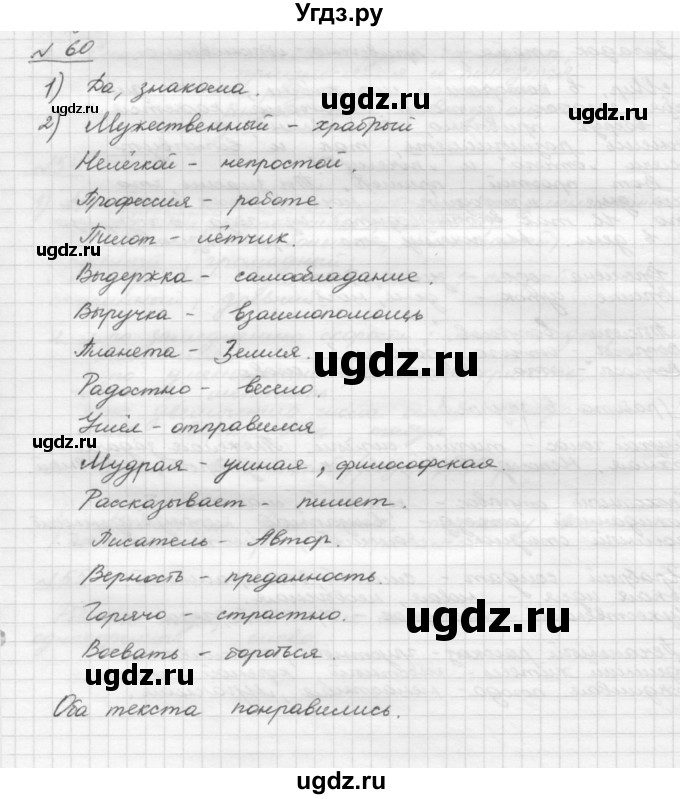 Угдз.ру
№ 60
1) Да, знакома.
ugdz.ru
ugdz.ru
2) Мужественный - храбрый
Нелёгкой - непростой.
Профессия - работе.
ugdz.ru
Пилот - лётчик.
Выдержка - самообладание.
Выручка - взаимопомощь
Планета - Земля.
ugdz.ru
Радостно - весело.
ugdz.ru
Ушёл - отправился
Мудрая - умная, философская.
Рассказывает - пишет.
Писатель - Автор.
Верность - преданность.
Горячо - страстно.
ugdz.ru
Воевать - бороться.
ugdz.ru
Оба текста понравились.
ugdz.ru